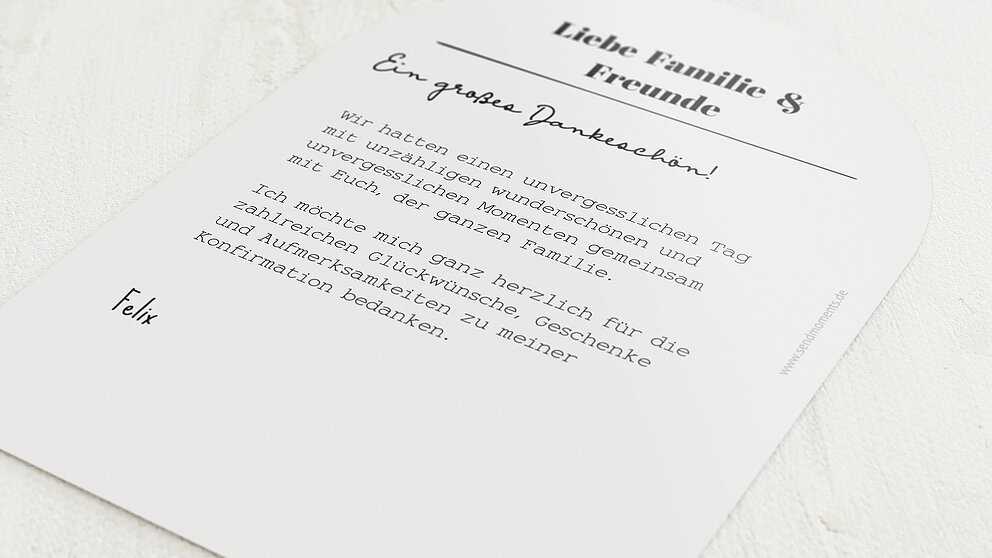 Liebe Familie &
Freunde
Ein großes Dankeschön!
Wir hatten einen unvergesslichen Tag
mit unzähligen wunderschönen und
unvergesslichen Momenten gemeinsam
mit Euch, der ganzen Familie.
Ich möchte mich ganz herzlich für die
zahlreichen Glückwünsche, Geschenke
und Aufmerksamkeiten zu meiner
Konfirmation bedanken.
Felix
www.sendmoments.de